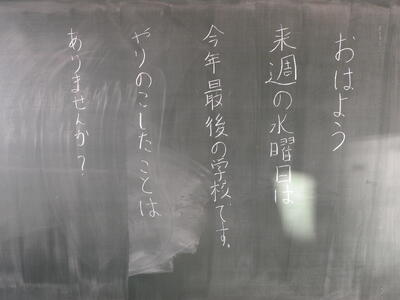 おはよう
来週の水曜日は
今年最後の学校です。
やりのこしたことは
ありませんか?